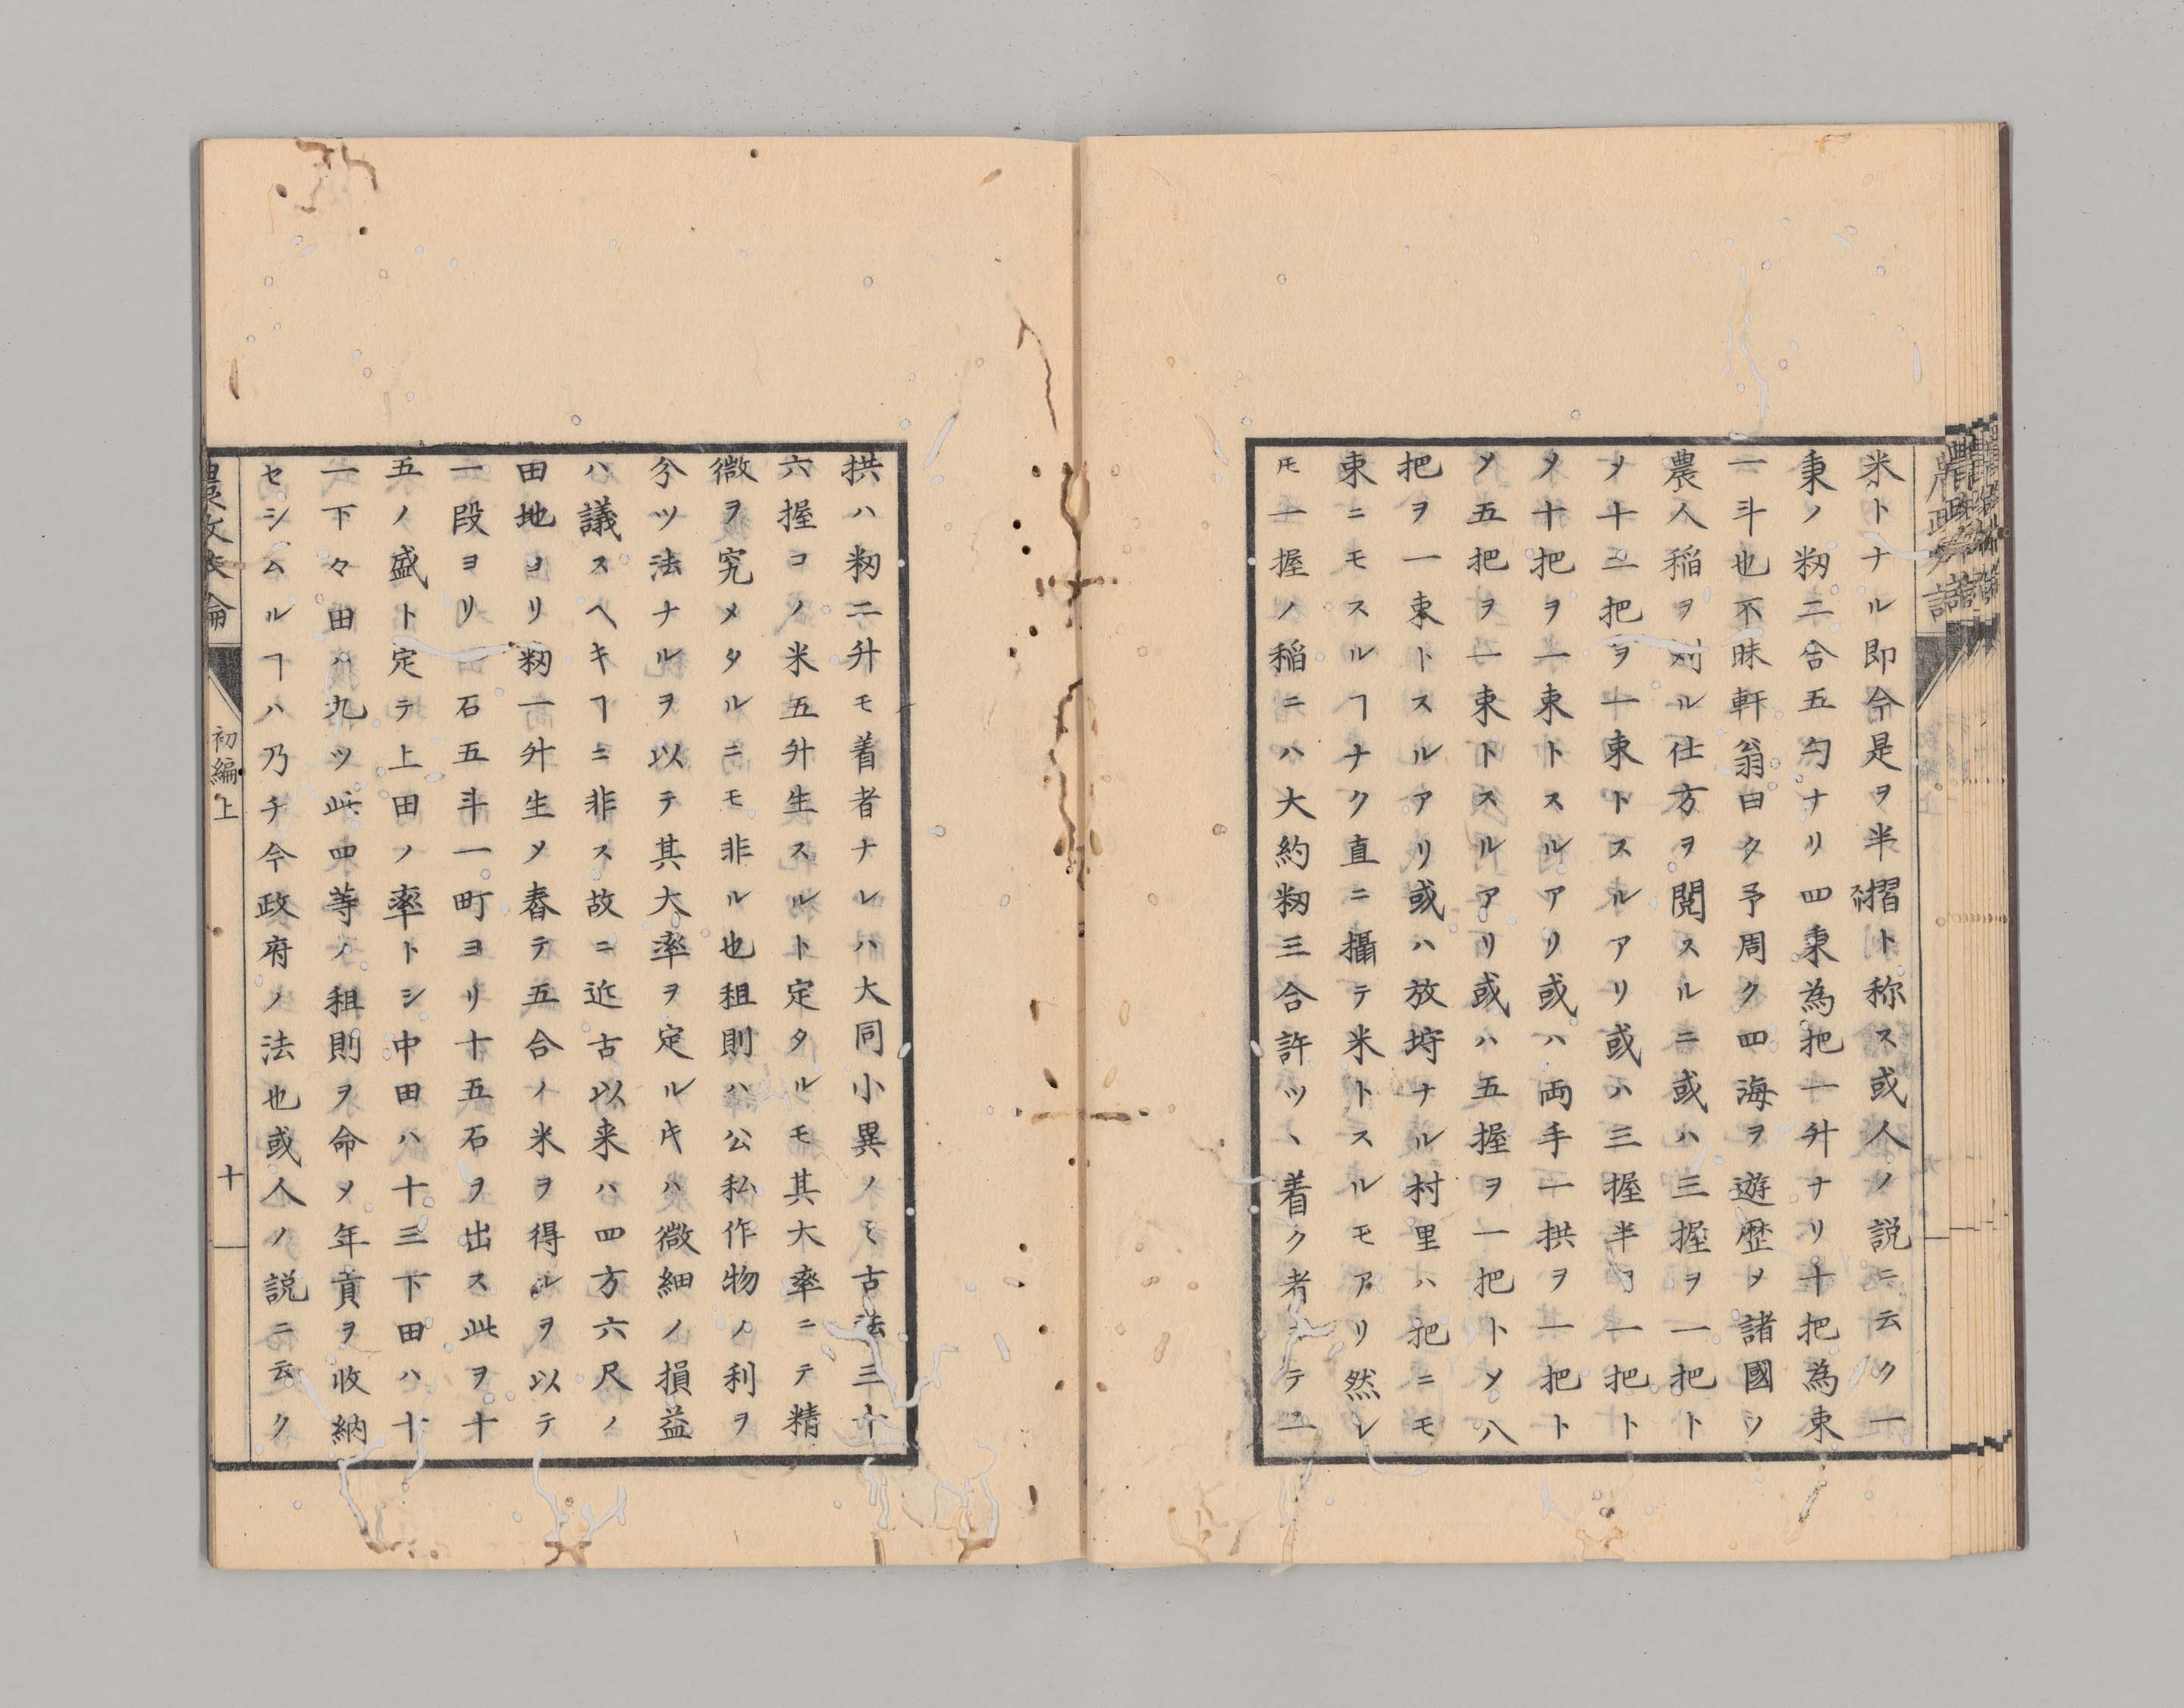 米トナル即今是ヲ半摺ト称ス或人ノ説ニ云ク一
秉ノ籾二合五勺ナリ四秉為把一升ナリ十把為束
一斗也不昧軒翁曰ク予周ク四海ヲ遊歴メ諸國ノ
農人稲ヲ刈ル仕方ヲ閲スルニ或ハ三握ヲ一把ト
メ十二把ヲ一束トスルアリ或ハ三握半ヲ一把ト
メ十把ヲ一束トスルアリ或ハ両手一拱ヲ一把ト
メ五把ヲ一束トスルアリ或ハ五握ヲ一把トメ八
把ヲ一束トスルアリ或ハ放埓ナル村里ハ把ニモ
束ニモスルヿナク直ニ攝テ米トスルモアリ然レ
𪜈一握ノ稲ニハ大約籾三合許ツヽ着ク者ニテ一
拱ハ籾二升モ着者ナレハ大同小異ノミ古法三十
六握コノ米五升生スルト定タルモ其大率ニテ精
微ヲ究メタルニモ非ル也租則ハ公私作物ノ利ヲ
分ツ法ナルヲ以テ其大率ヲ定ルキハ微細ノ損益
ハ議スヘキヿニ非ス故ニ近古以来ハ四方六尺ノ
田地ヨリ籾一升生メ舂テ五合ノ米ヲ得ルヲ以テ
一段ヨリ一石五斗一町ヨリ十五石ヲ出ス此ヲ十
五ノ盛ト定テ上田ノ率トシ中田ハ十三下田ハ十
一下々田ハ九ツ此四等ノ租則ヲ命メ年貢ヲ收納
セシムルヿハ乃チ今政府ノ法也或人ノ説ニ云ク
初編上
十